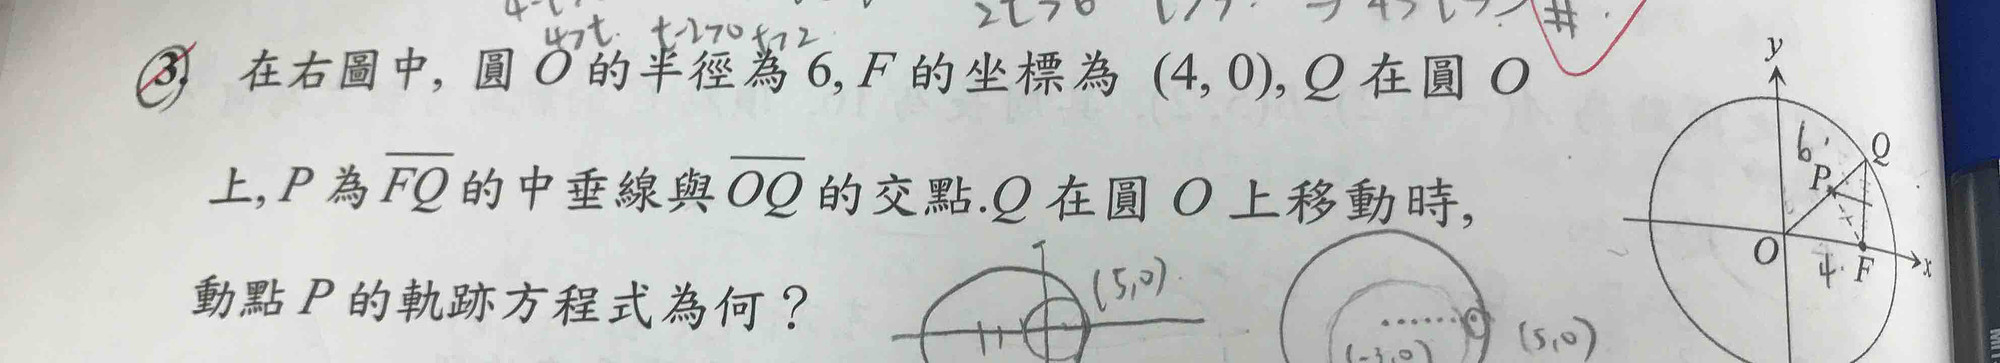 4>t. t-2>0 t>2
3. 在右圖中, 圓 O 的半徑為 6, F 的坐標為 (4, 0), Q 在圓 O
上, P 為 FQ 的中垂線與 OQ 的交點. Q 在圓 O 上移動時,
動點 P 的軌跡方程式為何？
y
6
Q
P
O
4
F
x
(5,0)
(-3,0)
(5,0)